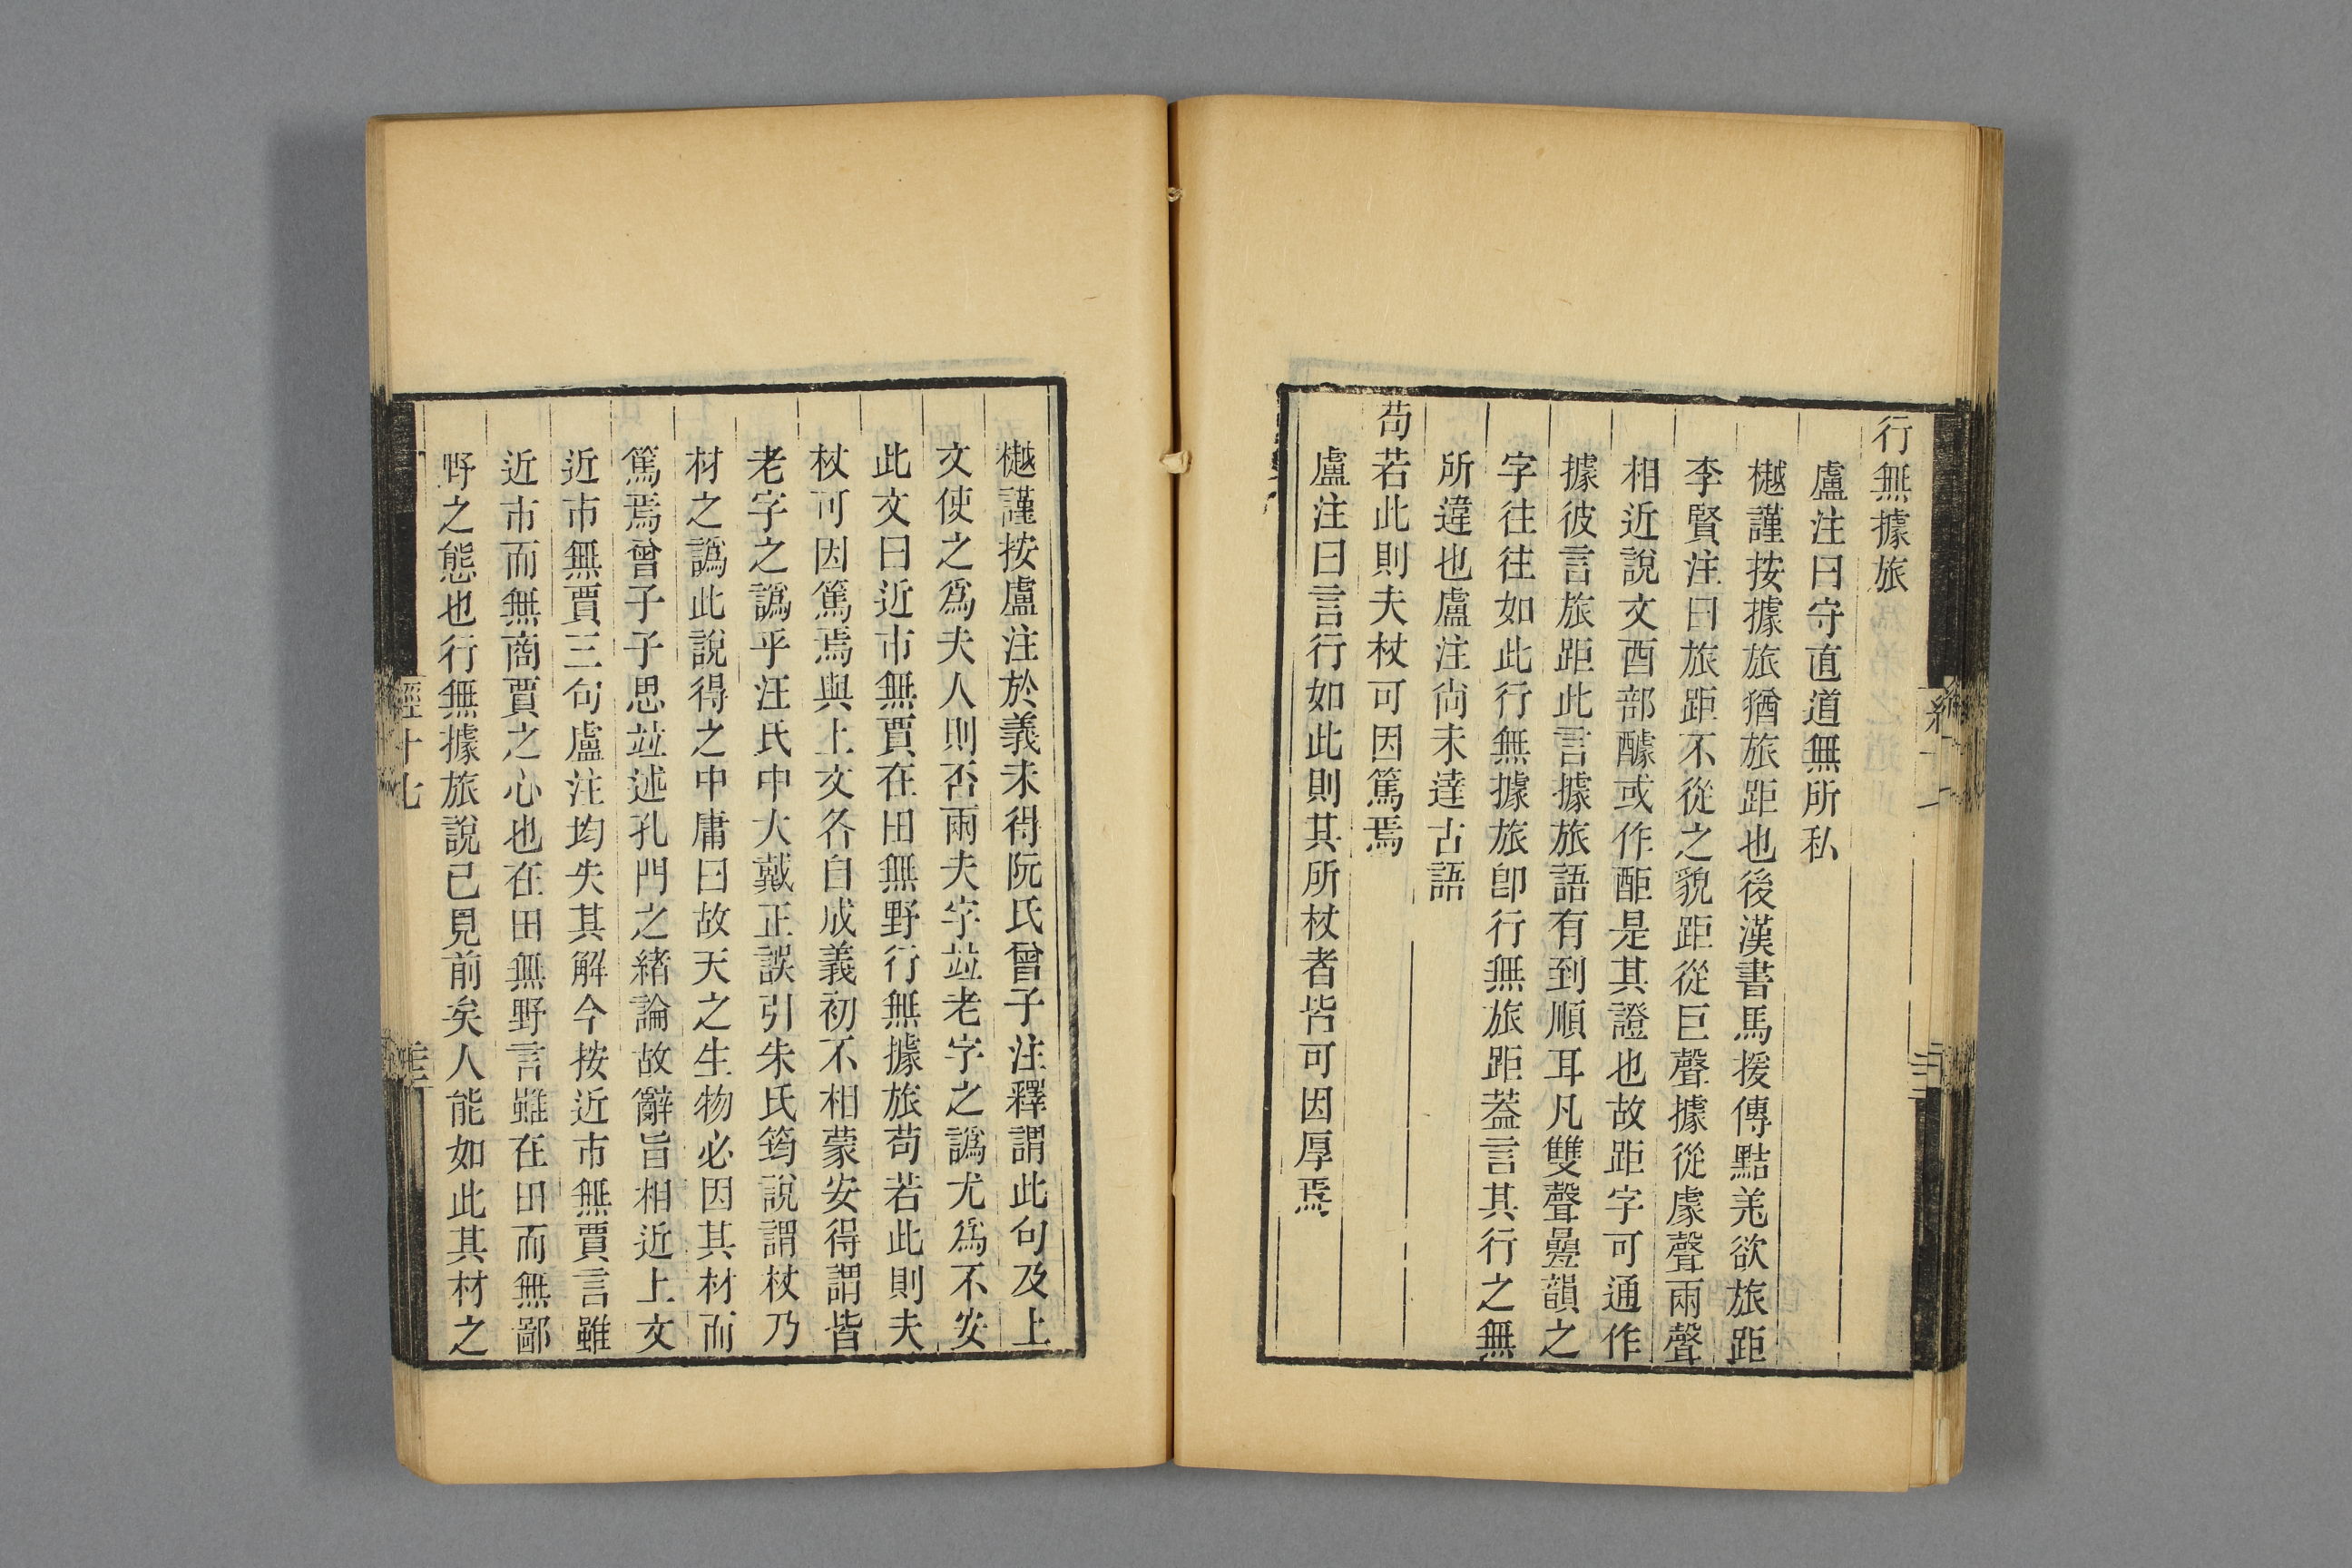 行無據旅
盧注曰守直道無所私
樾謹按據旅猶旅距也後漢書馬援傳黠羌欲旅距
李賢注曰旅距不從之貌距從巨聲據從豦聲兩聲
相近說文酉部醵或作酠是其證也故距字可通作
據彼言旅距此言據旅語有到順耳凡雙聲疊韻之
字往往如此行無據旅卽行無旅距葢言其行之無
所違也盧注尙未達古語
苟若此則夫杖可因篤焉
盧注曰言行如此則其所杖者皆可因厚焉
樾謹按盧注於義未得阮氏曾子注釋謂此句及上
文使之爲夫人則否兩夫字竝老字之譌尤爲不安
此文曰近市無賈在田無野行無據旅苟若此則夫
杖可因篤焉與上文各自成義初不相蒙安得謂皆
老字之譌乎汪氏中大戴正誤引朱氏筠說謂杖乃
材之譌此說得之中庸曰故天之生物必因其材而
篤焉曾子子思竝述孔門之緒論故辭旨相近上文
近市無賈三句盧注均失其解今按近市無賈言雖
近市而無商賈之心也在田無野言雖在田而無鄙
野之態也行無據旅說已見前矣人能如此其材之
經十七